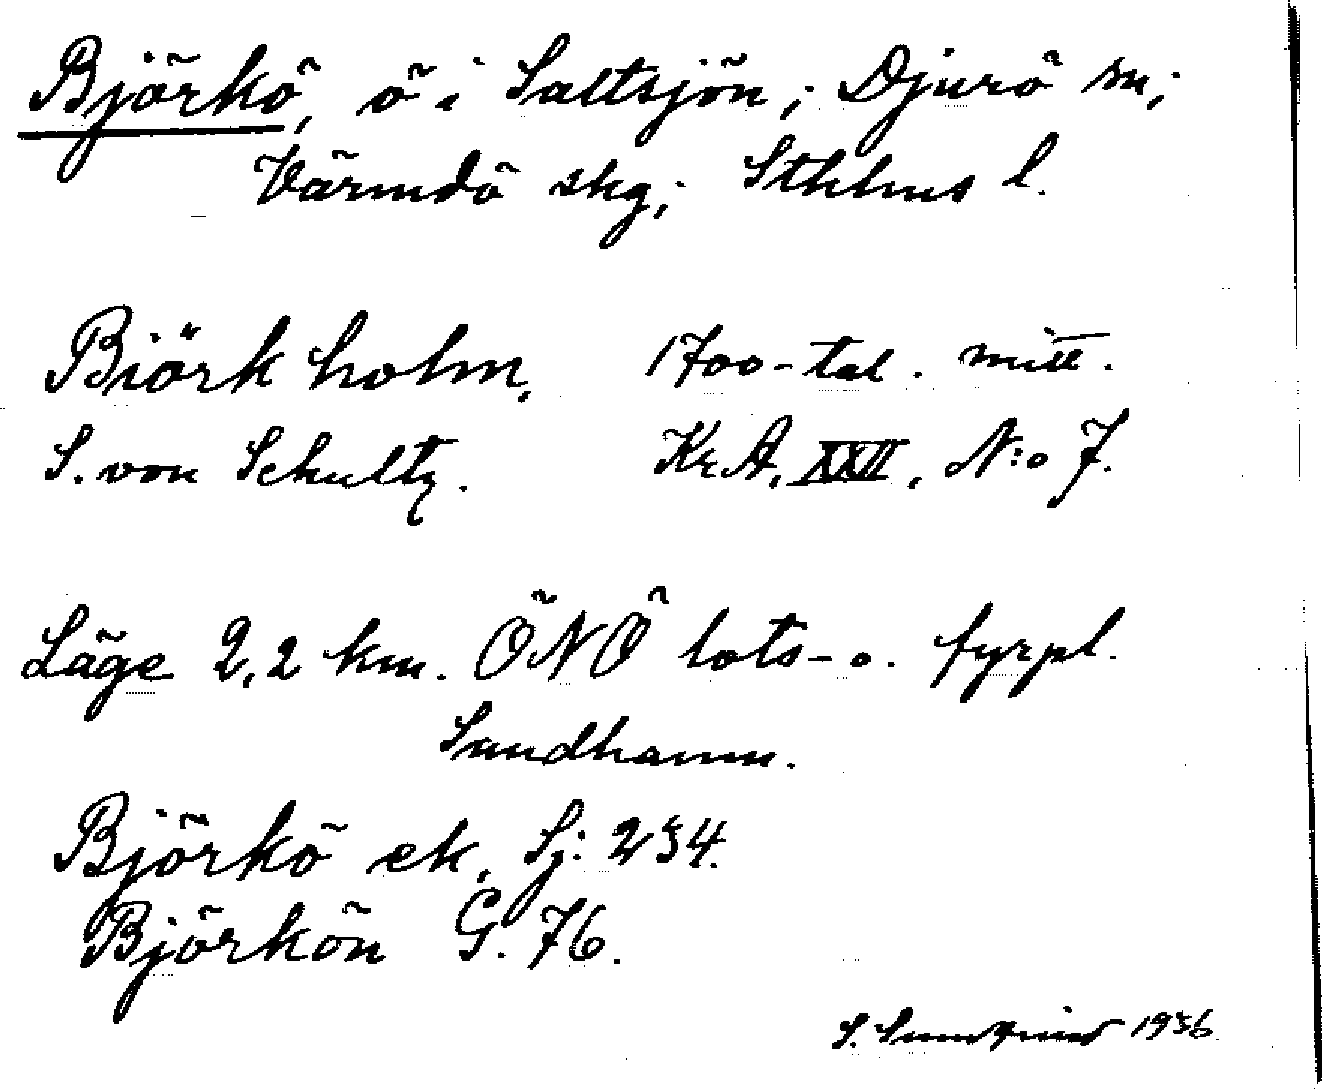 Björkö, ö i Saltsjön; Djurö sn;
Värmdö skg; Sthlms l.
Biörk holm, 1700-tal. mitt.
S. von Schultz. KrA, XXII, N:o 7.
Läge 2,2 km. ÖNÖ lots- o. fyrpl.
Sandhamn.
Björkö ek, Sj: 234.
Björkön G. 76.
S. 1936